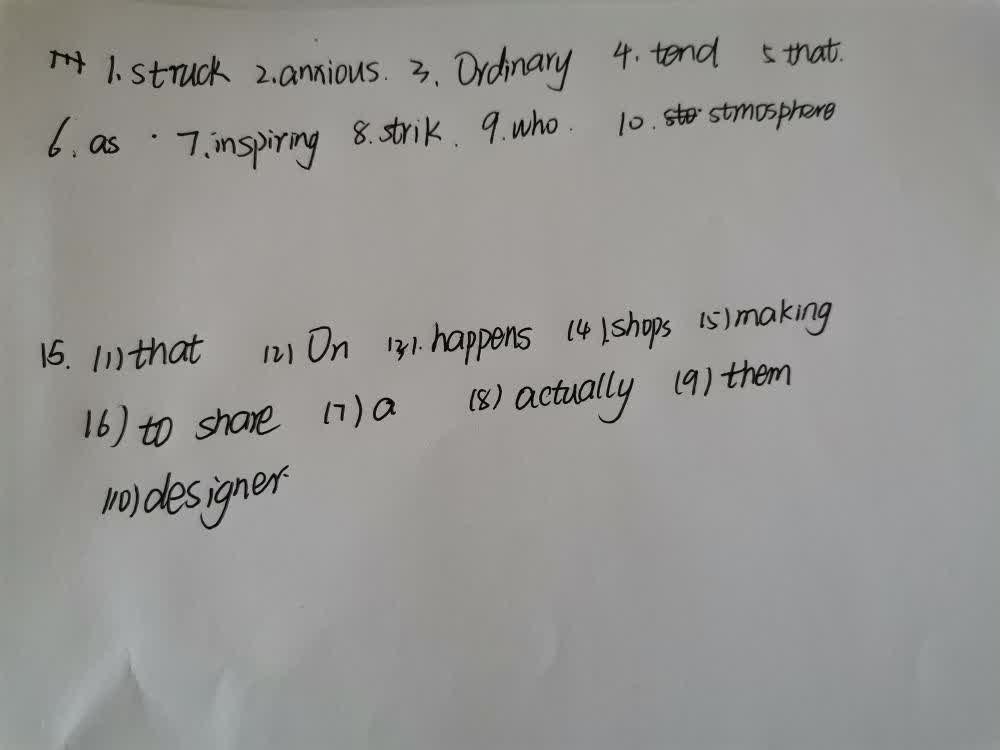 1. struck 2. anxious. 3. Ordinary 4. tend 5 that.
6. as 7. inspiring 8. strik. 9. who. 10. stmosphere
15. (1) that (2) On (3). happens (4). shops (5) making
(6) to share (7) a (8) actually (9) them
(10) designer.